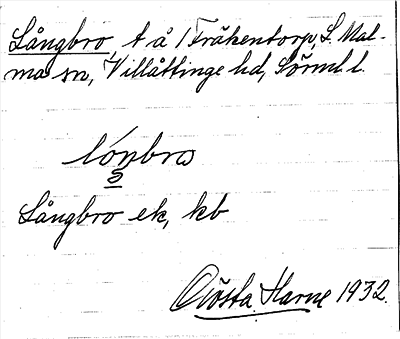 Långbro, t å 1 Fräkentorp, L. Mal-
ma sn, Villåttinge hd, Sörml l.
lónbro
Långbro ek, kb
Gösta Harne 1932.